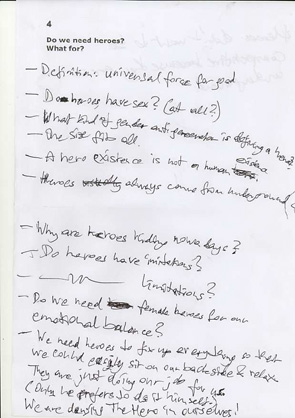 4
Do we need heroes?
What for?
– Definition: universal force for good
– Do heroes have sex? (at all?)
– What kind of gender is defining a hero?
– One size fits all.
– A hero existence is not a human
– Heroes always come from underground
– Why are heroes kidding nowadays?
– Do heroes have imitations?
– limitations?
– Do we need female heroes for our
emotional balance?
– We need heroes to fix up everything so that
we could easily sit on our backside & relax
They are just doing our job for us
himself)
We are denying The Hero in ourselves!